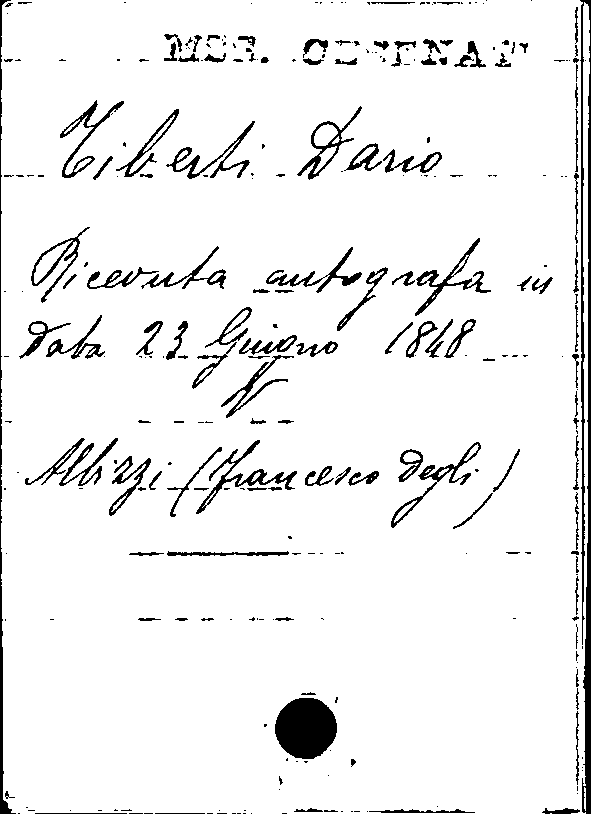 MSS. CESENAT
Tiberti Dario
Ricevuta autografa in
data 23 Giugno 1848
V
Albizzi (Francesco degli)